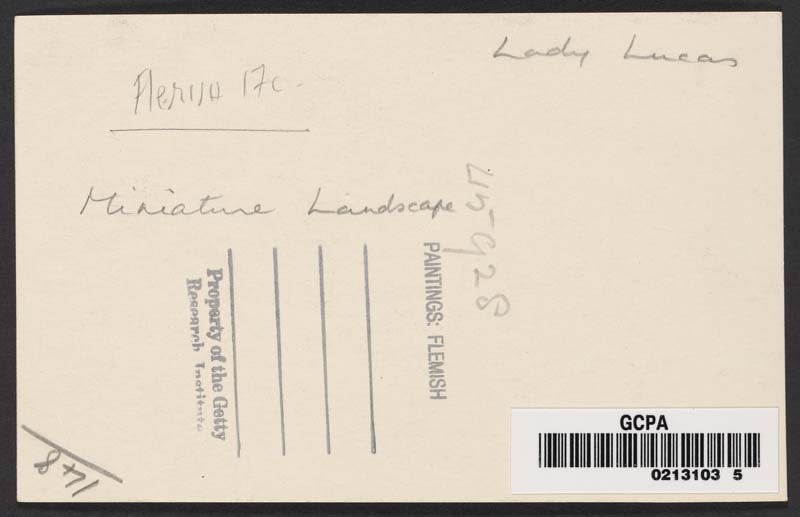 Lady Lucas
Flemish 17c.
Miniature Landscape
PAINTINGS: FLEMISH
Property of the Getty
Research Institute
GCPA
0213103 5